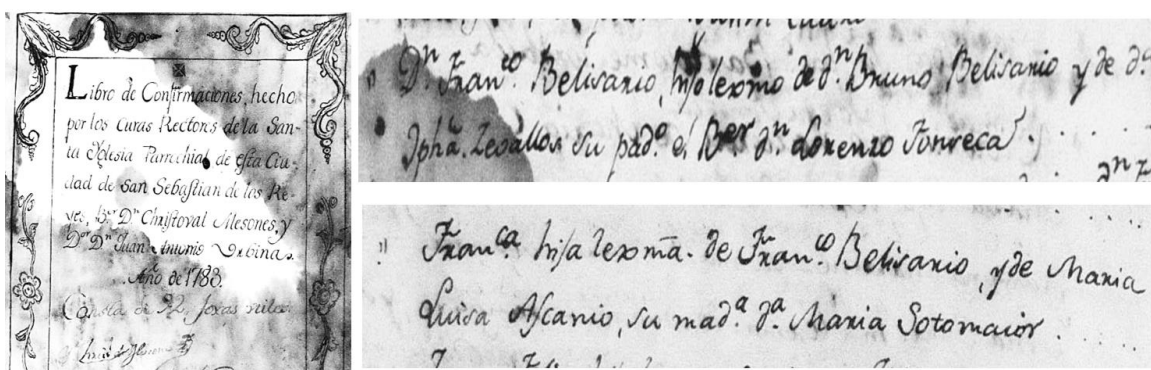 Libro de Confirmaciones, hecho
por los Curas Rectores de la San-
ta Yglesia Parrochial de esta Ciu-
dad de San Sebastian de los Re-
yes, Br. Dn Christoval Mesones, y
Dor. Dn Juan Antonio Urbina.
Año de 1788.
Consta de
Dn. Franco. Belisario, hijo lexmo de dn. Bruno Belisario y de da.
Jpha. Zevallos su pado. el Ber dn. Lorenzo Fonseca.
Franca. hija lexma. de Franco. Belisario, y de Maria
Luisa Ascanio, su mada. da. Maria Sotomaior.